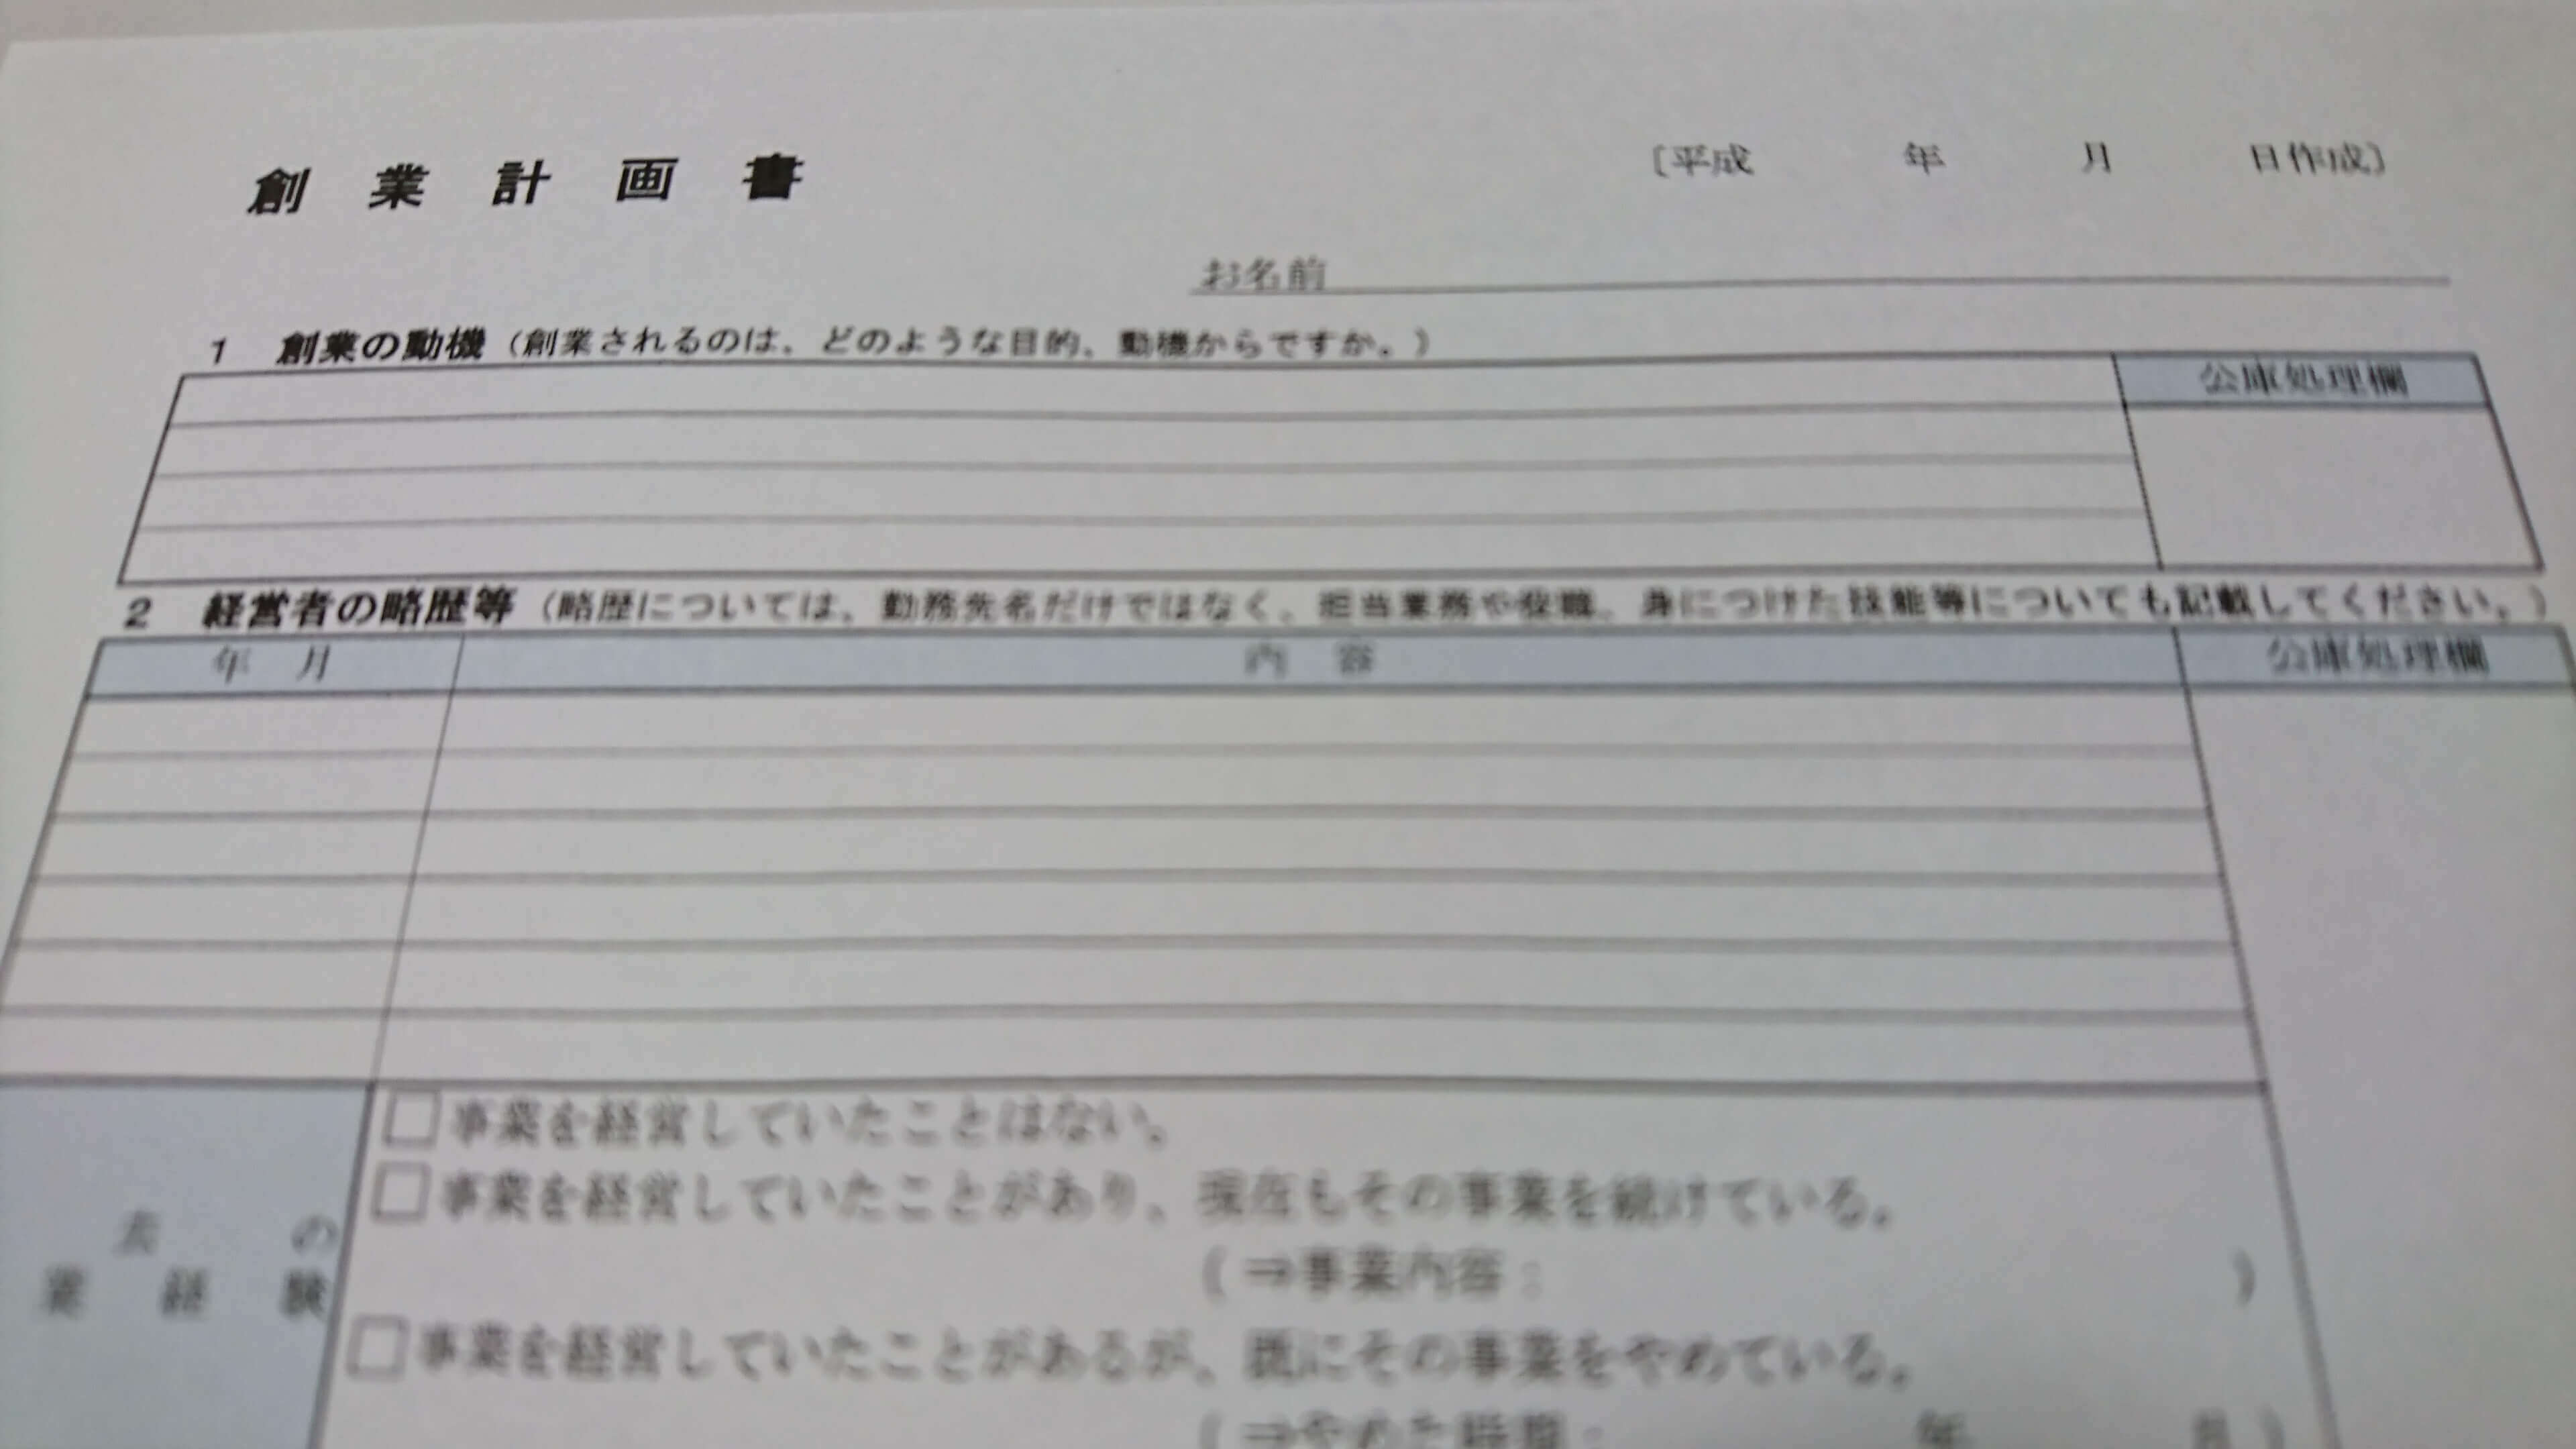 創業計画書
〔平成 年 月 日作成〕
お名前
1 創業の動機（創業されるのは、どのような目的、動機からですか。）
公庫処理欄
2 経営者の略歴等（略歴については、勤務先名だけではなく、担当業務や役職、身につけた技能等についても記載してください。）
年 月 内 容 公庫処理欄
去 の
業 経 験
□事業を経営していたことはない。
□事業を経営していたことがあり、現在もその事業を続けている。
（⇒事業内容： ）
□事業を経営していたことがあるが、既にその事業をやめている。
（⇒やめた時期： 年 月）